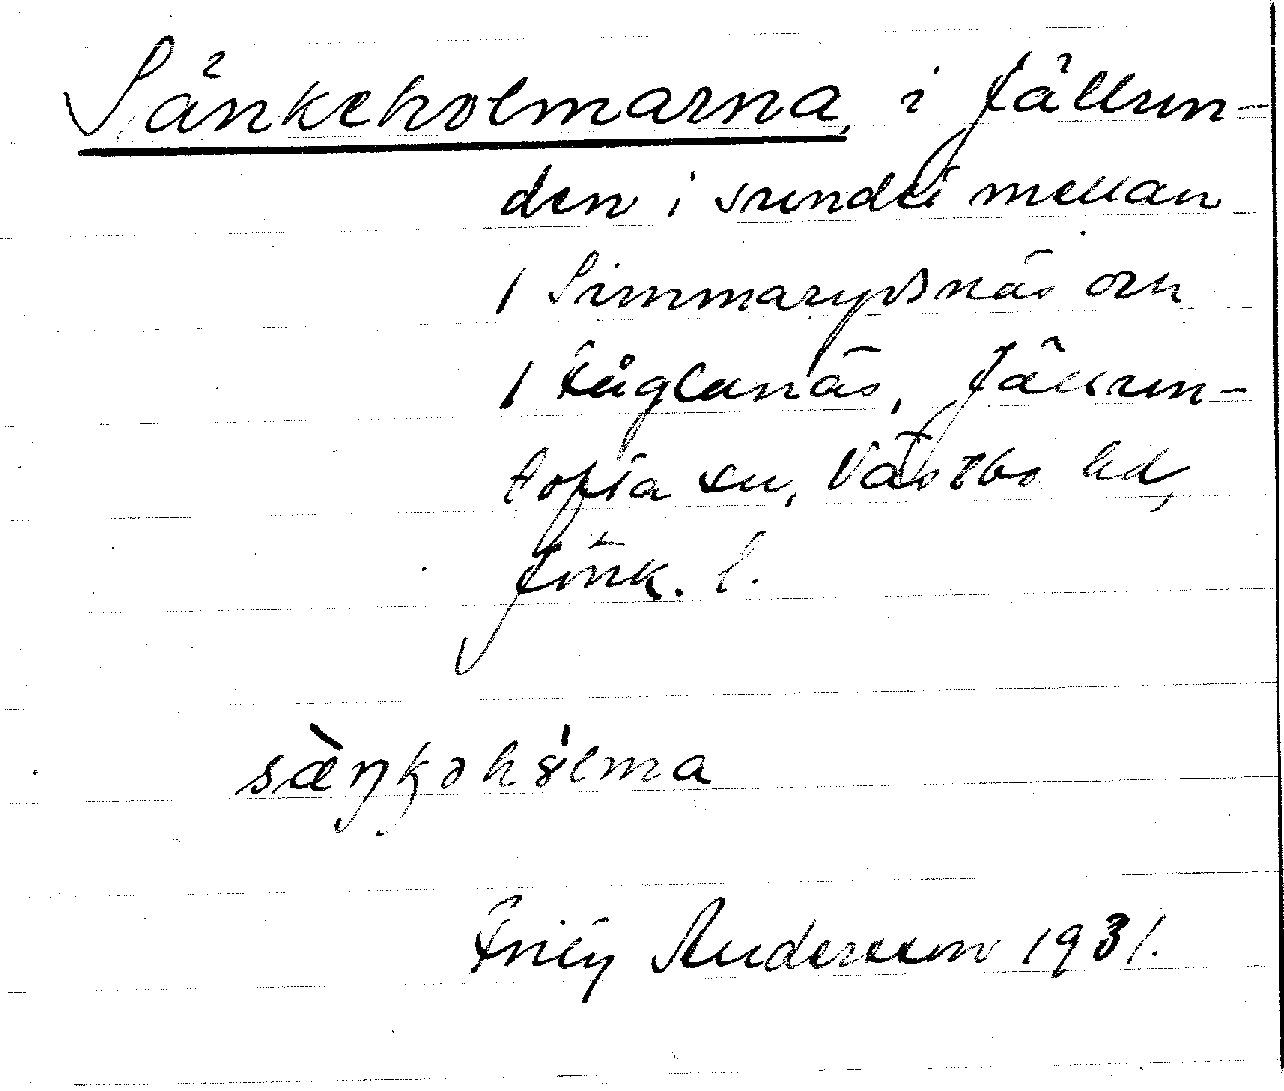 Sänkeholmarna, i Jällun-
den i sundet mellan
/ Simmarydsnäs och
/ Fåglanäs, Jällun-
tofta sn, Västbo hd,
Jönk. l.
sæ̀ŋkəhɵlma
Andersson 1931.